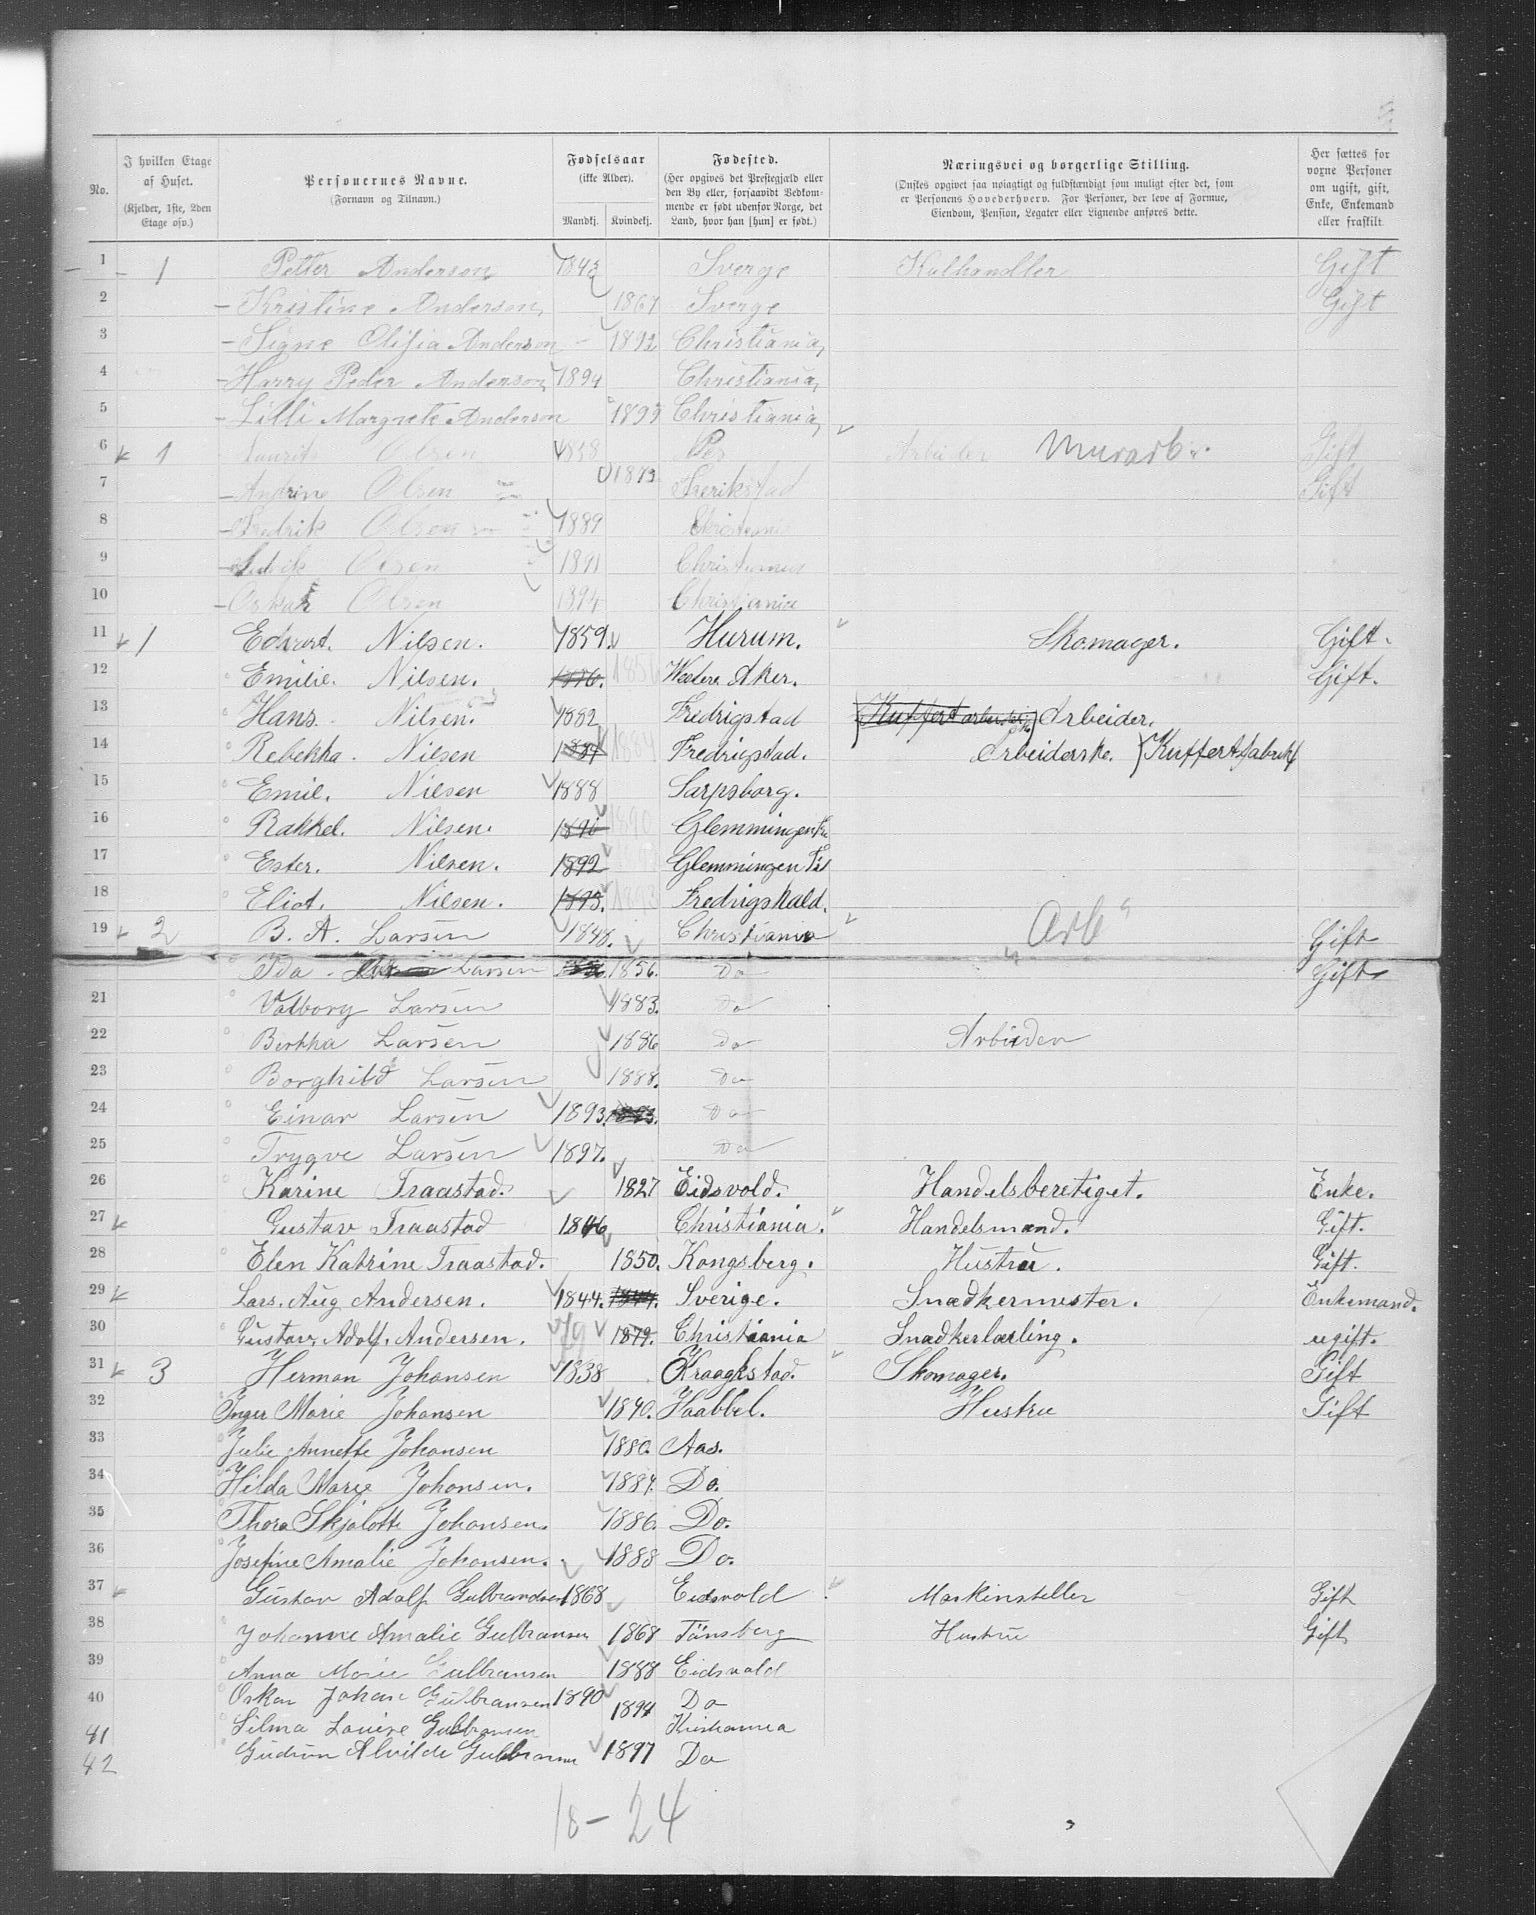 No. I hvilken Etage af Huset. (Kjelder, 1ste, 2den Etage osv.) Personernes Navne. (Fornavn og Tilnavn.) Fødselsaar (ikke Alder). Mandkj. Kvindekj. Fødested. (Her opgives det Prestegjæld eller den By eller, forsaavidt Vedkommende er født udenfor Norge, det Land, hvor han [hun] er født.) Næringsvei og borgerlige Stilling. (Ønskes opgivet saa nøiagtigt og fuldstændigt som muligt efter det, som er Personens Hovederhverv. For Personer, der leve af Formue, Eiendom, Pension, Legater eller Lignende anføres dette. Her sættes for vorne Personer om ugift, gift, Enke, Enkemand eller fraskilt.
1 1 Petter Anderson 1843 Sverge Kulhandler Gift
2 Kristine Anderson 1867 Sverge Gift
3 Signe Olifia Anderson 1892 Christiania
4 Harry Peder Anderson 1894 Christiania
5 Lilli Margrete Anderson 1899 Christiania
6 1 Olsen 1858 Arbeider Murarb. Gift
7 Andrine Olsen 1893 Frerikstad Gift
8 Fredrik Olsen 1889 Christiania
9 Ludvik Olsen 1891 Christiania
10 Oskar Olsen 1894 Christiania
11 1 Edvert. Nilsen. 1859. Hurum. Skomager. Gift.
12 Emilie. Nilsen. 1856 Westre Aker. Gift.
13 Hans. Nilsen. 1882 Fredrigstad Kuffertarbeider Arbeider.
14 Rebekka. Nilsen 1884 Fredrigstad. Arbeiderske. Kuffertfabrik
15 Emil. Nilsen 1888 Sarpsborg.
16 Rakkel. Nilsen. 1890 Glemmingen
17 Ester. Nilsen. 1892 Glemmingen
18 Eliot. Nilsen. 1893 Fredrigshald.
19 2 B. A. Larsen 1848. Christiania Arb Gift
Ida Larsen 1856. Do Gift
21 Valborg Larsen 1883. Do
22 Berthha Larsen 1886 Do Arbeider
23 Borghild Larsen 1888. Do
24 Einar Larsen 1893. Do
25 Trygve Larsen 1897. Do
26 Karine Traastad. 1827 Eidsvold. Handelsberetiget. Enke.
27 Gustav Traastad 1846 Christiania. Handelsmand. Gift.
28 Elen Katrine Traastad. 1850. Kongsberg. Hustru. Gift.
29 Lars. Aug Andersen. 1844. 1844. Sverige. Snedkermester. Enkemand.
30 Gustav. Adolf. Andersen. 79 1879. Christiania Snedkerlærling. ugift.
31 3 Herman Johansen 1838 Kraagkstad. Skomager. Gift
32 Inger Marie Johansen 1840. Haabbel. Hustru Gift
33 Julie Annette Johansen 1880. Aas.
34 Hilda Marie Johansen. 1884. Do.
35 Thora Skjalotte Johansen. 1886. Do.
36 Josefine Amalie Johansen. 1888 Do.
37 Gustav Adolf Gulbrandsen 1868 Eidsvold Maskinsteller Gift
38 Johanne Amalie Gulbransen 1868 Tønsberg Hustru Gift
39 Anna Marie Gulbransen 1888 Eidsvold
40 Oskar Johan Gulbransen 1890 Do
41 Silma Louise Gulbransen 1894 Kristiania
42 Gudrun Alvilde Gulbransen 1897 Do
18-24